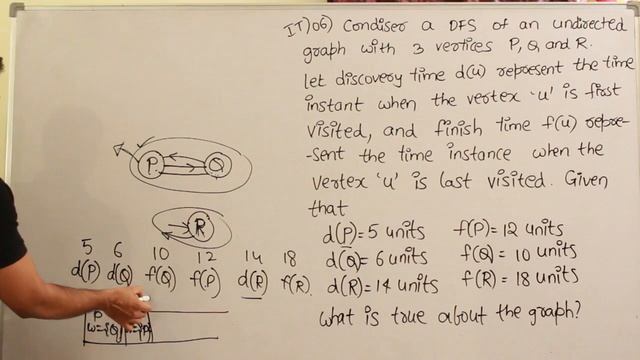 IT)06) Condiser a DFS of an undirected
graph with 3 vertices P, Q and R.
let discovery time d(u) represent the time
instant when the vertex 'u' is first
visited, and finish time f(u) repre-
-sent the time instance when the
vertex 'u' is last visited. Given
that
d(P)=5 units f(P)=12 units
d(Q)=6 units f(Q)=10 units
d(R)=14 units f(R)=18 units
what is true about the graph?
P Q
R
5 6 10 12 14 18
d(P) d(Q) f(Q) f(P) d(R) f(R)
P
w={Q}